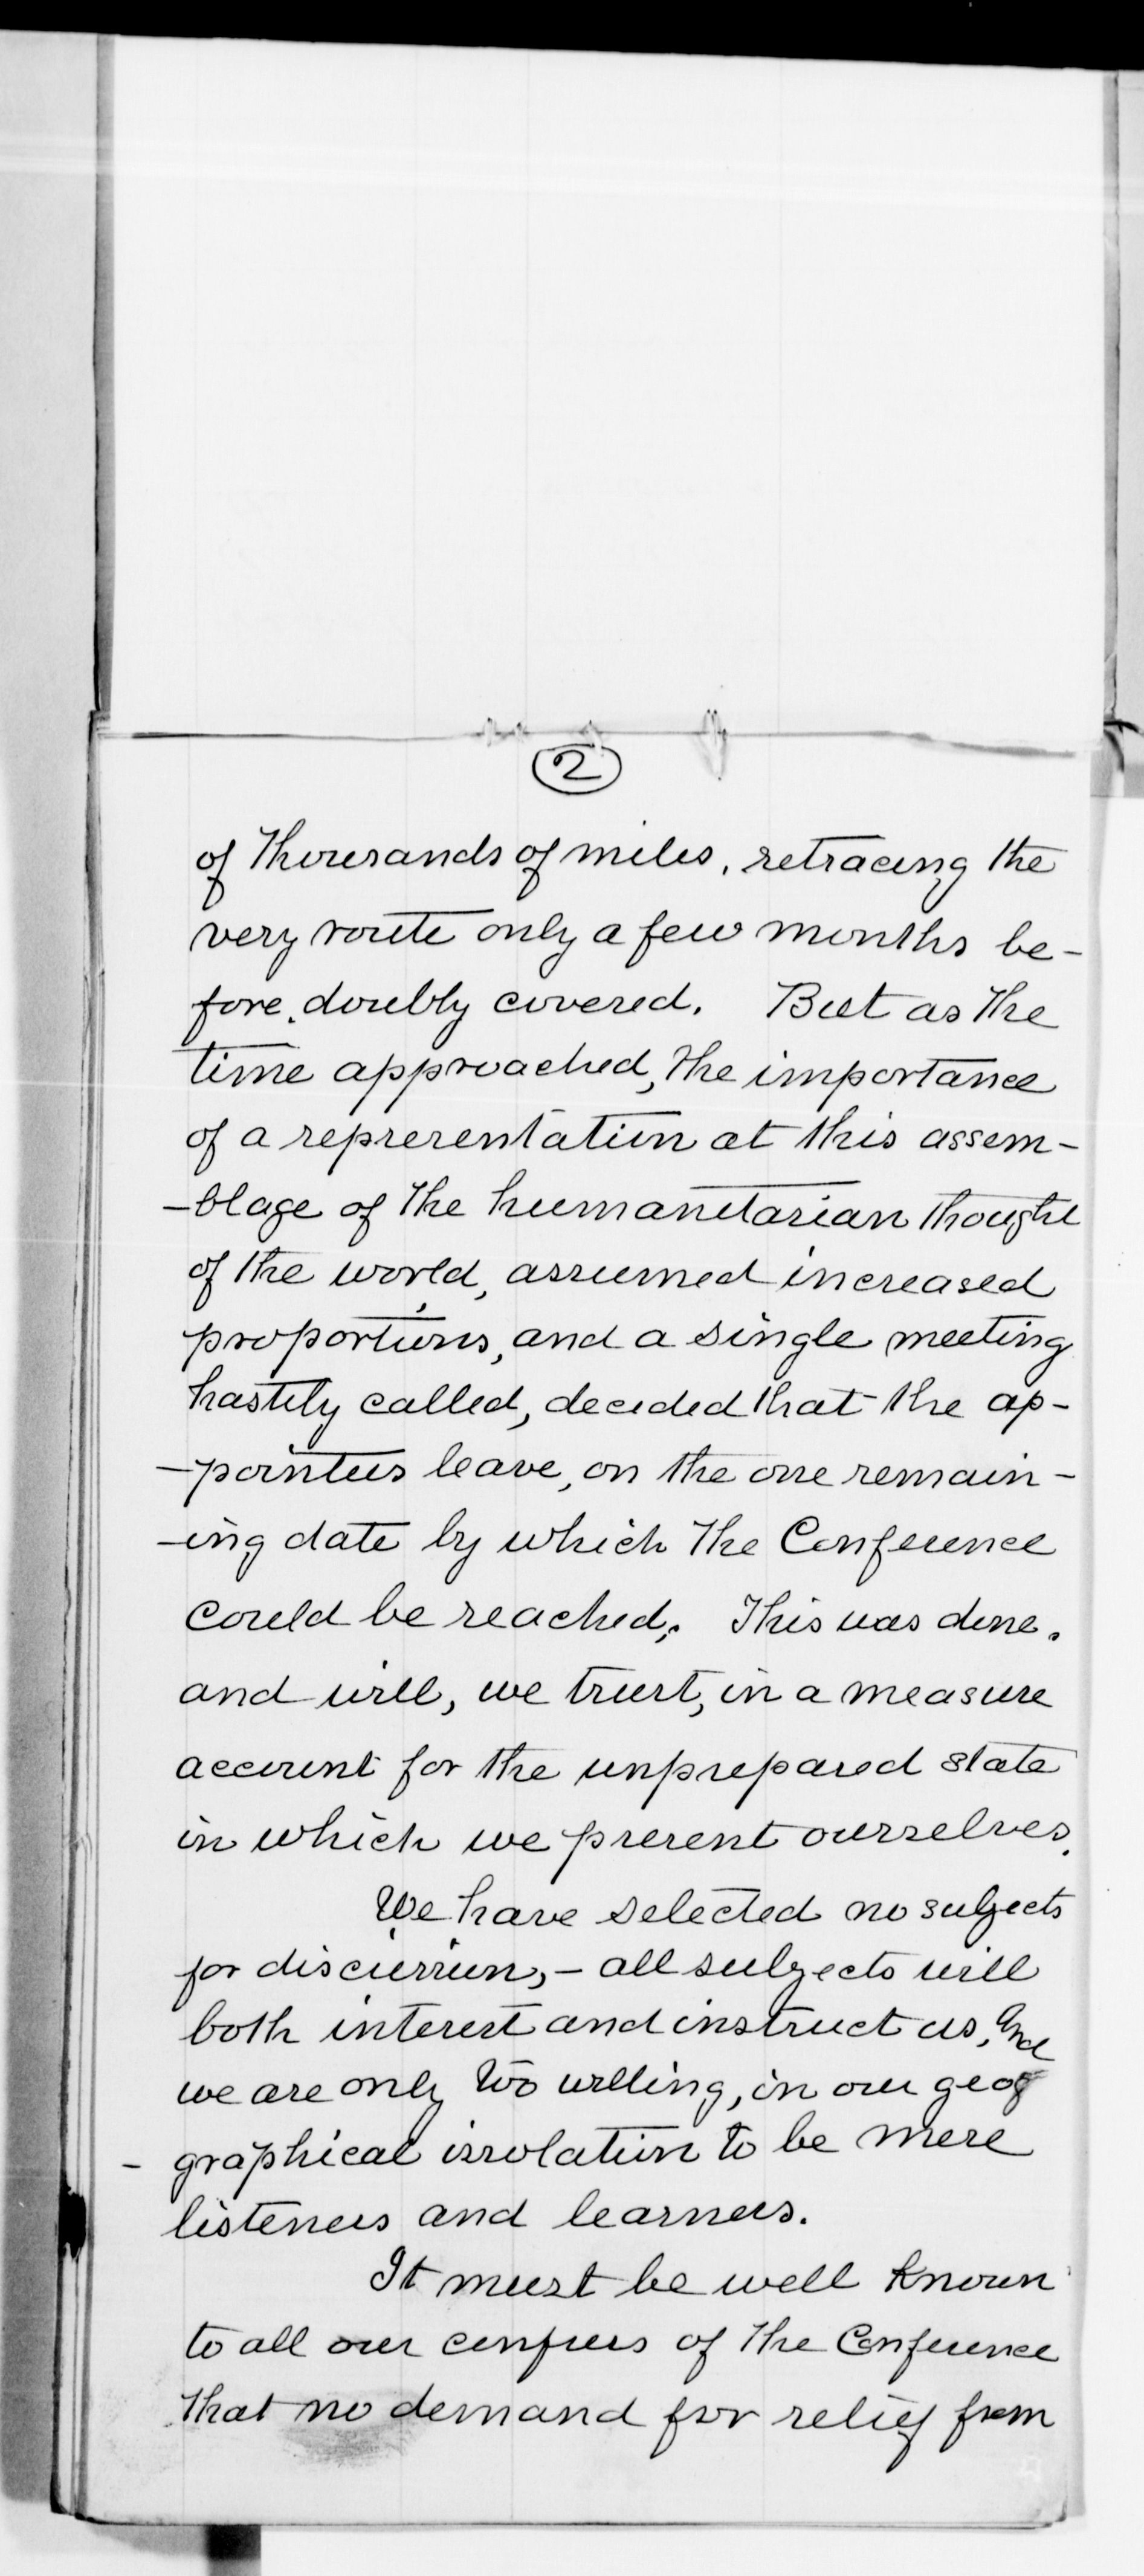 2
of thousands of miles, retracing the
very route only a few months be-
fore, doubly covered. But as the
time approached, the importance
of a representation at this assem-
-blage of the humanitarian thought
of the world, assumed increased
proportions, and a single meeting
hastily called, decided that the ap-
-pointees leave, on the one remain-
-ing date by which the Conference
could be reached. This was done,
and will, we trust, in a measure
account for the unprepared state
in which we present ourselves.
We have selected no subjects
for discussion, - all subjects will
both interest and instruct us, and
we are only too willing, in our geog
- graphical issolation to be mere
listeners and learners.
It must be well known
to all our confrers of the Conference
that no demand for relief from